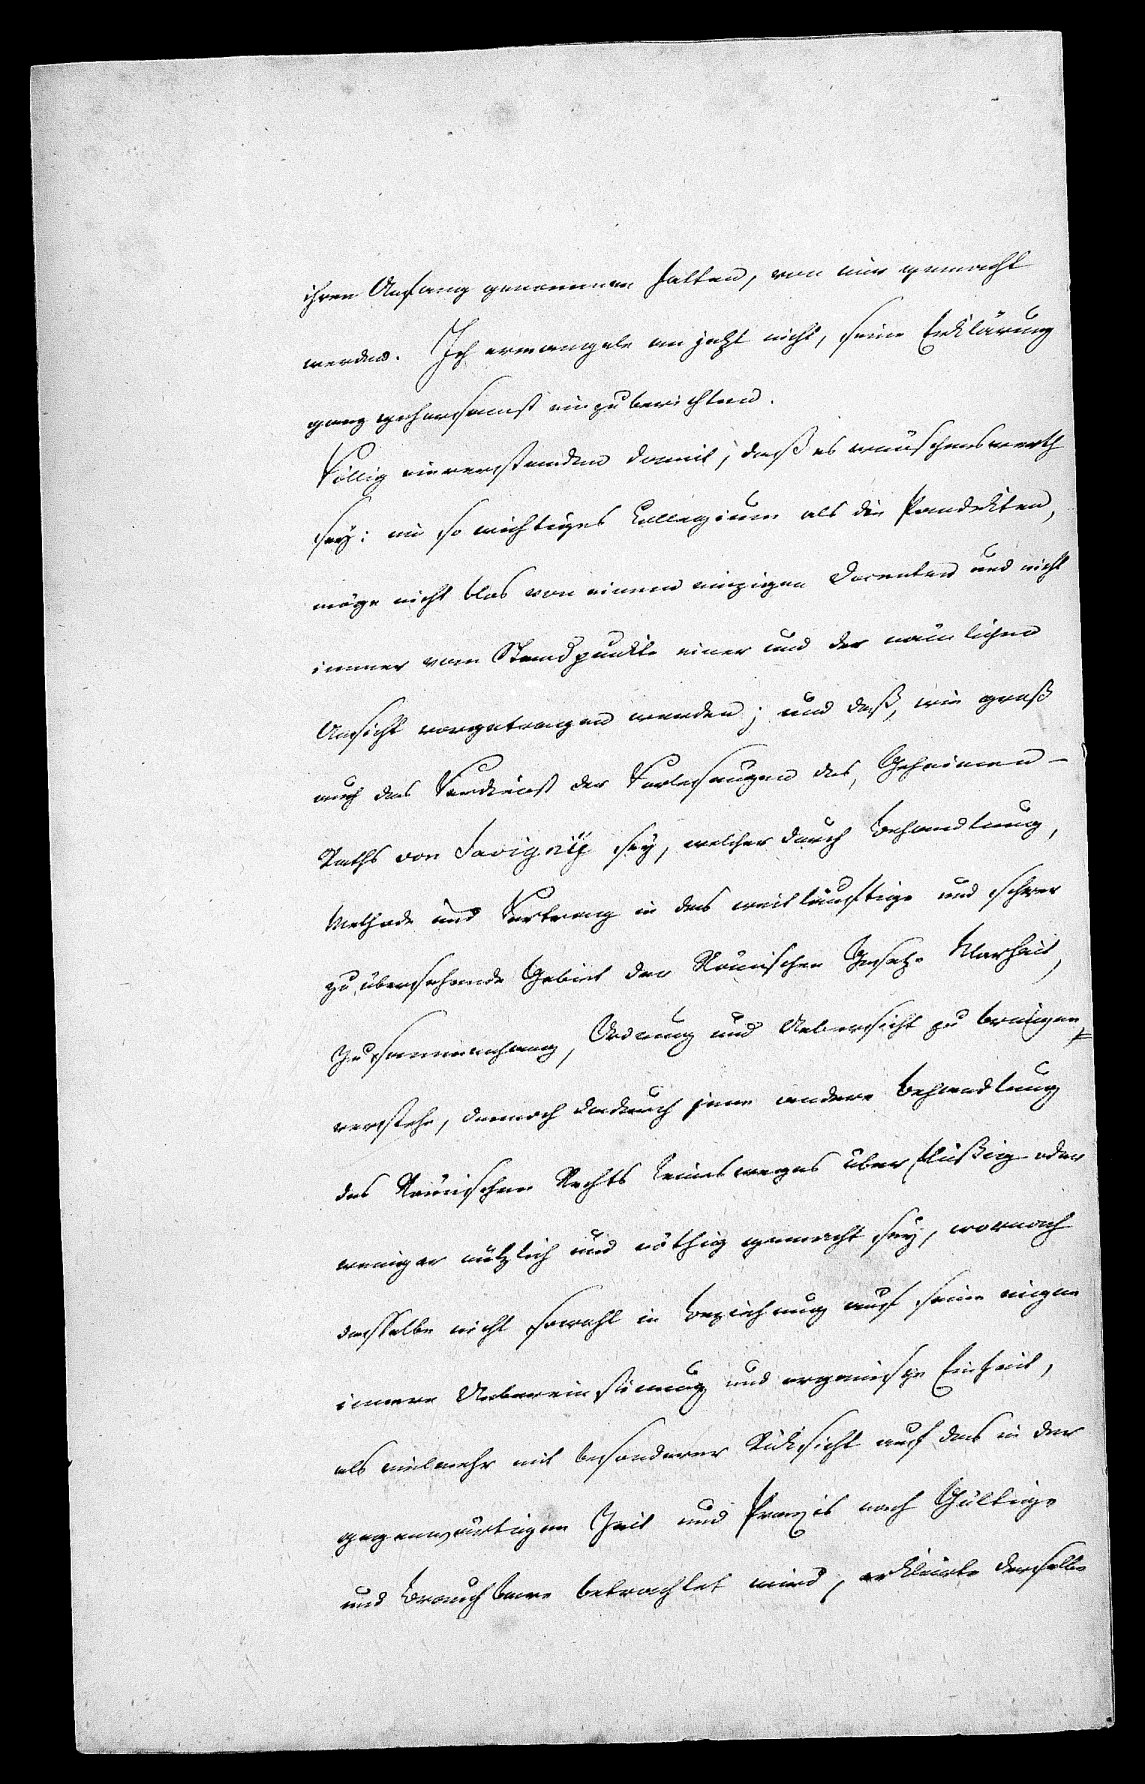 ihren Anfang genommen hatten, von mir gemacht
werden. Ich ermangele an jetzt nicht, seine Erklärung
ganz gehorsamst einzuberichten.
Völlig einverstanden damit, daß es wünschenswerth
sey: ein so wichtiges Collegium als die Pandekten,
möge nicht blos von einem einzigen Docenten und nicht
immer vom Standpunkte einer und der nämlichen
Ansicht vorgetragen werden; und daß, wie groß
auch das Verdienst der Vorlesungen des, Geheimen-
Raths von Savigny sey, welcher durch Behandlung,
Methode und Vortrag in das weitläuftige und schwer
zu übersehende Gebiet der Römischen Gesetze Klarheit,
Zusammenhang, Ordnung und Uebersicht zu bringen
verstehe, dennoch dadurch jene andere Behandlung
des Römischen Rechts keineswegs überflüßig oder
weniger nützlich und nöthig gemacht sey, wornach
dasselbe nicht sowohl in Beziehung auf seine eigne
innere Uebereinstimmung und organische Einheit,
als vielmehr mit besonderer Rücksicht auf das in der
gegenwärtigen Zeit und Praxis noch Gültige
und Brauchbare betrachtet wird, erklärte derselbe